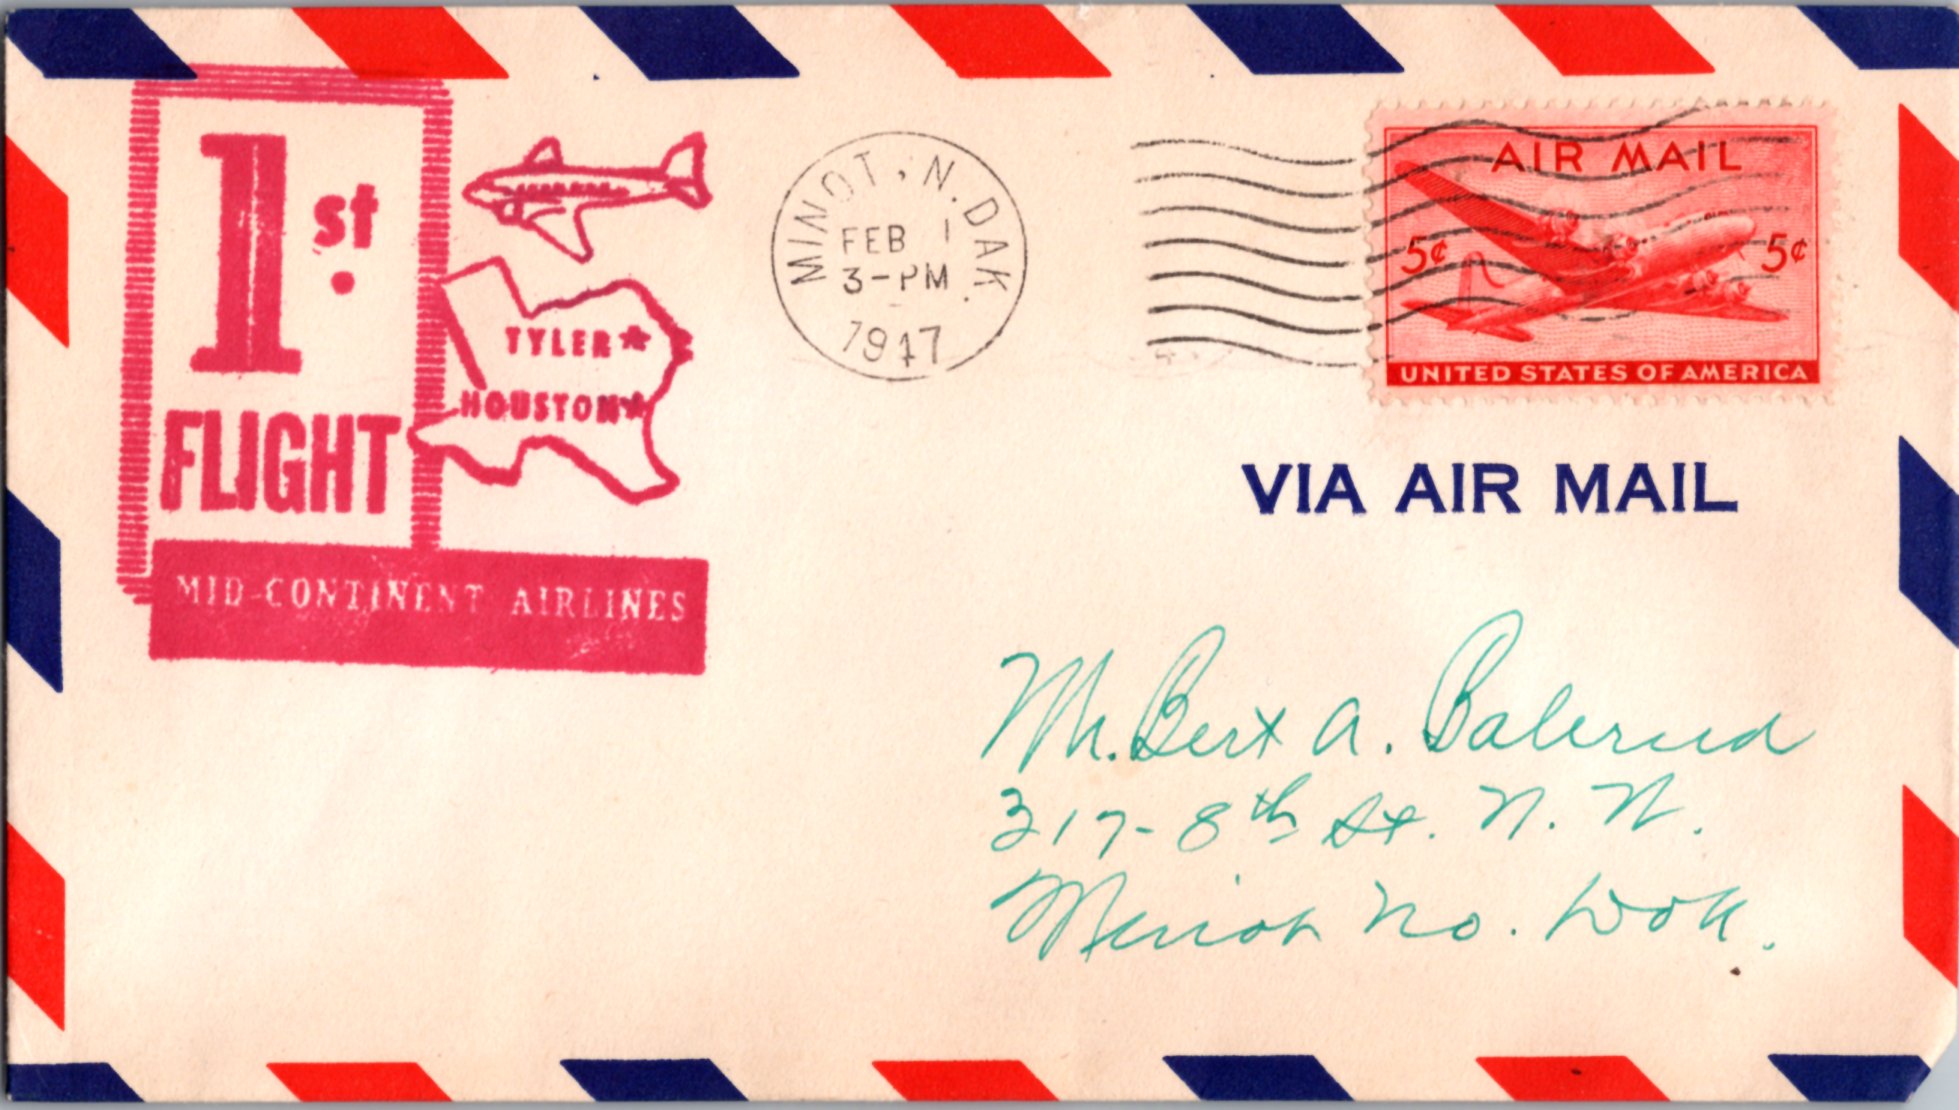 1st.
FLIGHT
TYLER
HOUSTON
MID-CONTINENT AIRLINES
MINOT, N. DAK.
FEB 1
3-PM
1947
AIR MAIL
5¢ 5¢
UNITED STATES OF AMERICA
VIA AIR MAIL
Mr. Bert A. Balerud
317-8th St. N. W.
Minot No. Dak.